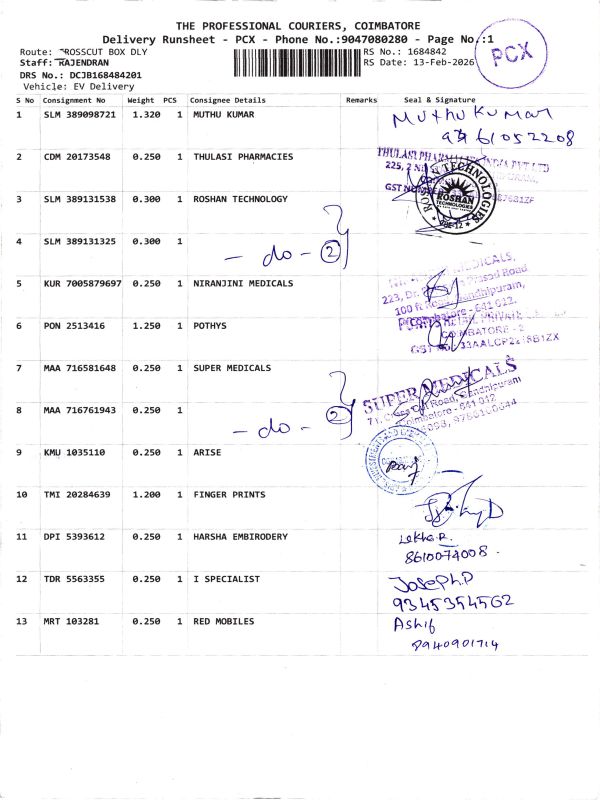 THE PROFESSIONAL COURIERS, COIMBATORE
Delivery Runsheet - PCX - Phone No.:9047080280 - Page No.:1
PCX
Route: CROSSCUT BOX DLY
RS No.: 1684842
Staff: RAJENDRAN
RS Date: 13-Feb-2026
DRS No.: DCJB168484201
Vehicle: EV Delivery
S No Consignment No Weight PCS Consignee Details Remarks Seal & Signature
1 SLM 389098721 1.320 1 MUTHU KUMAR Muthu Kumar
61052208
2 CDM 20173548 0.250 1 THULASI PHARMACIES
THULASI INDIA PVT LTD
225, 2
3 SLM 389131538 0.300 1 ROSHAN TECHNOLOGY
ROSHAN TECHNOLOGIES
ROSHAN
TECHNOLOGIES
4 SLM 389131325 0.300 1
- do - 2
5 KUR 7005879697 0.250 1 NIRANJINI MEDICALS
MEDICALS,
223, Dr. Prasad Road
100 ft Road, Gandhipuram,
Coimbatore - 641 012.
6 PON 2513416 1.250 1 POTHYS
COIMBATORE - 2
7 MAA 716581648 0.250 1 SUPER MEDICALS
SUPER MEDICALS
71, Cross Cut Road, Gandhipuram
Coimbatore - 641 012
8 MAA 716761943 0.250 1
- do - 2
9 KMU 1035110 0.250 1 ARISE
10 TMI 20284639 1.200 1 FINGER PRINTS
11 DPI 5393612 0.250 1 HARSHA EMBIRODERY Lekha.R.
8610074008.
12 TDR 5563355 0.250 1 I SPECIALIST Joseph.P
9345354562
13 MRT 103281 0.250 1 RED MOBILES Ashif
8940901714